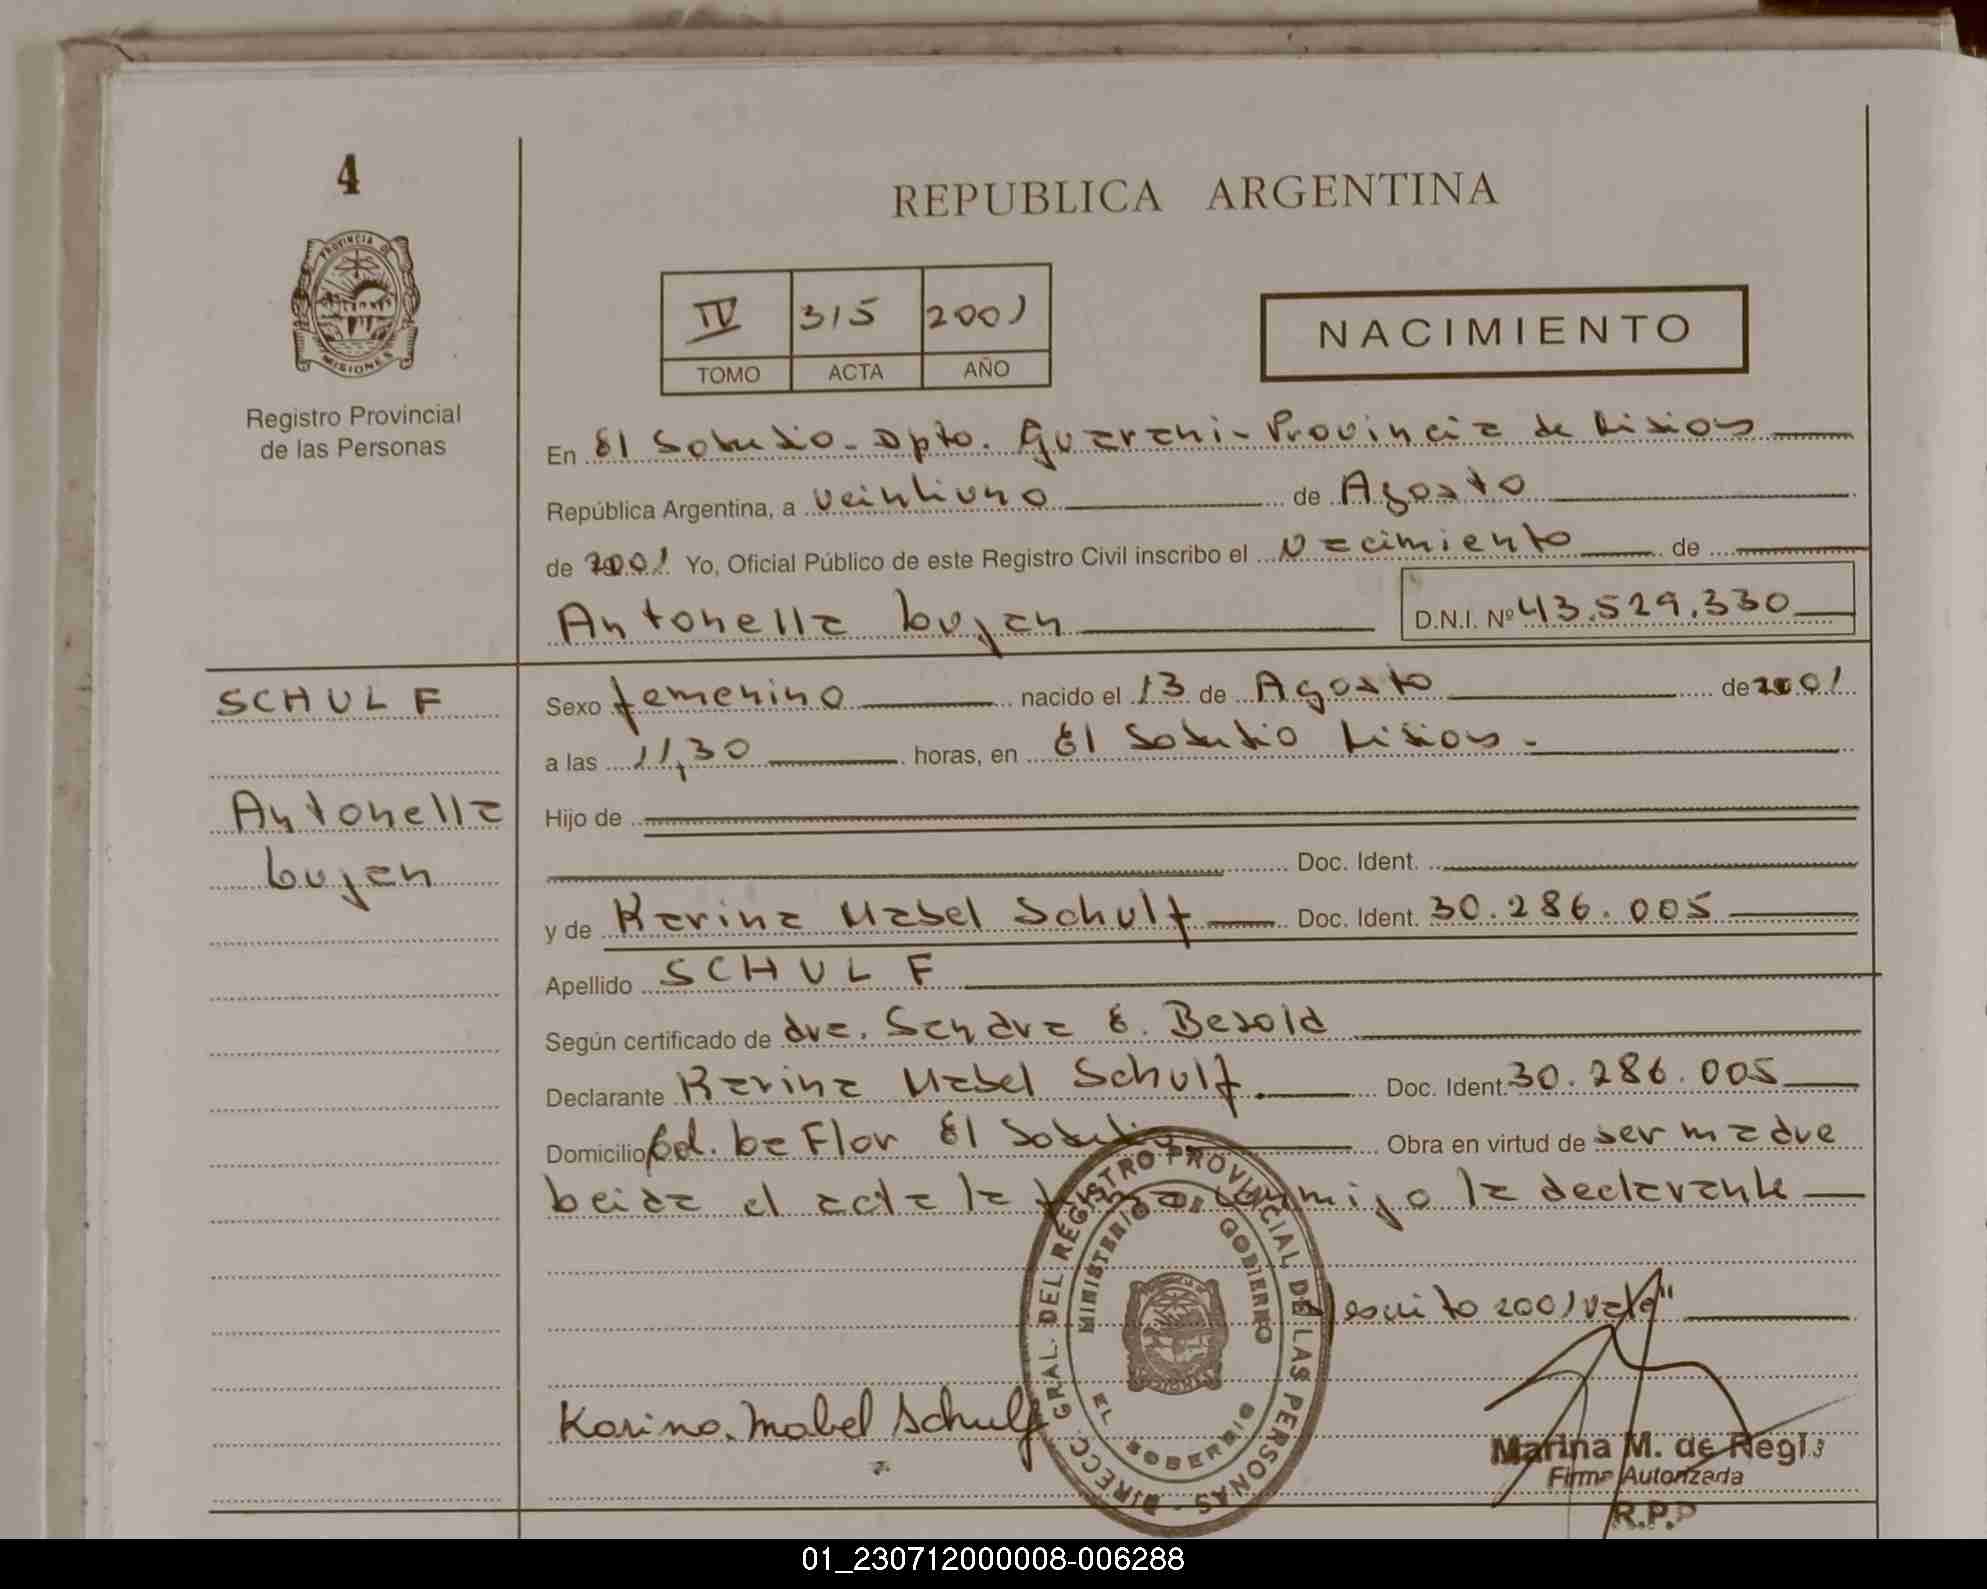 4
REPUBLICA ARGENTINA
PROVINCIA DE
MISIONES
IV 315 2001
TOMO ACTA AÑO
NACIMIENTO
Registro Provincial
de las Personas
En El Soberbio - Dpto. Guarani - Provincia de Misiones
República Argentina, a veintiuno de Agosto
de 2001 Yo, Oficial Público de este Registro Civil inscribo el Nacimiento de
Antonella Lujan D.N.I. Nº 43.529.330
SCHULF
Antonella
Lujan
Sexo femenino nacido el 13 de Agosto de 2001
a las 11,30 horas, en El Soberbio Misiones.
Hijo de
Doc. Ident.
y de Karina Mabel Schulf Doc. Ident. 30.286.005
Apellido SCHULF
Según certificado de dra. Sandra E. Besold
Declarante Karina Mabel Schulf Doc. Ident. 30.286.005
Domicilio Col. La Flor El Soberbio Obra en virtud de ser madre
Leida el acta la firma conmigo la declarante
escrito 2001 vale"
Karina Mabel Schulf
DIRECC. GRAL. DEL REGISTRO PROVINCIAL DE LAS PERSONAS -
MINISTERIO DE GOBIERNO
EL SOBERBIO
Marina M. de Regis
Firma Autorizada
R.P.P
01_230712000008-006288